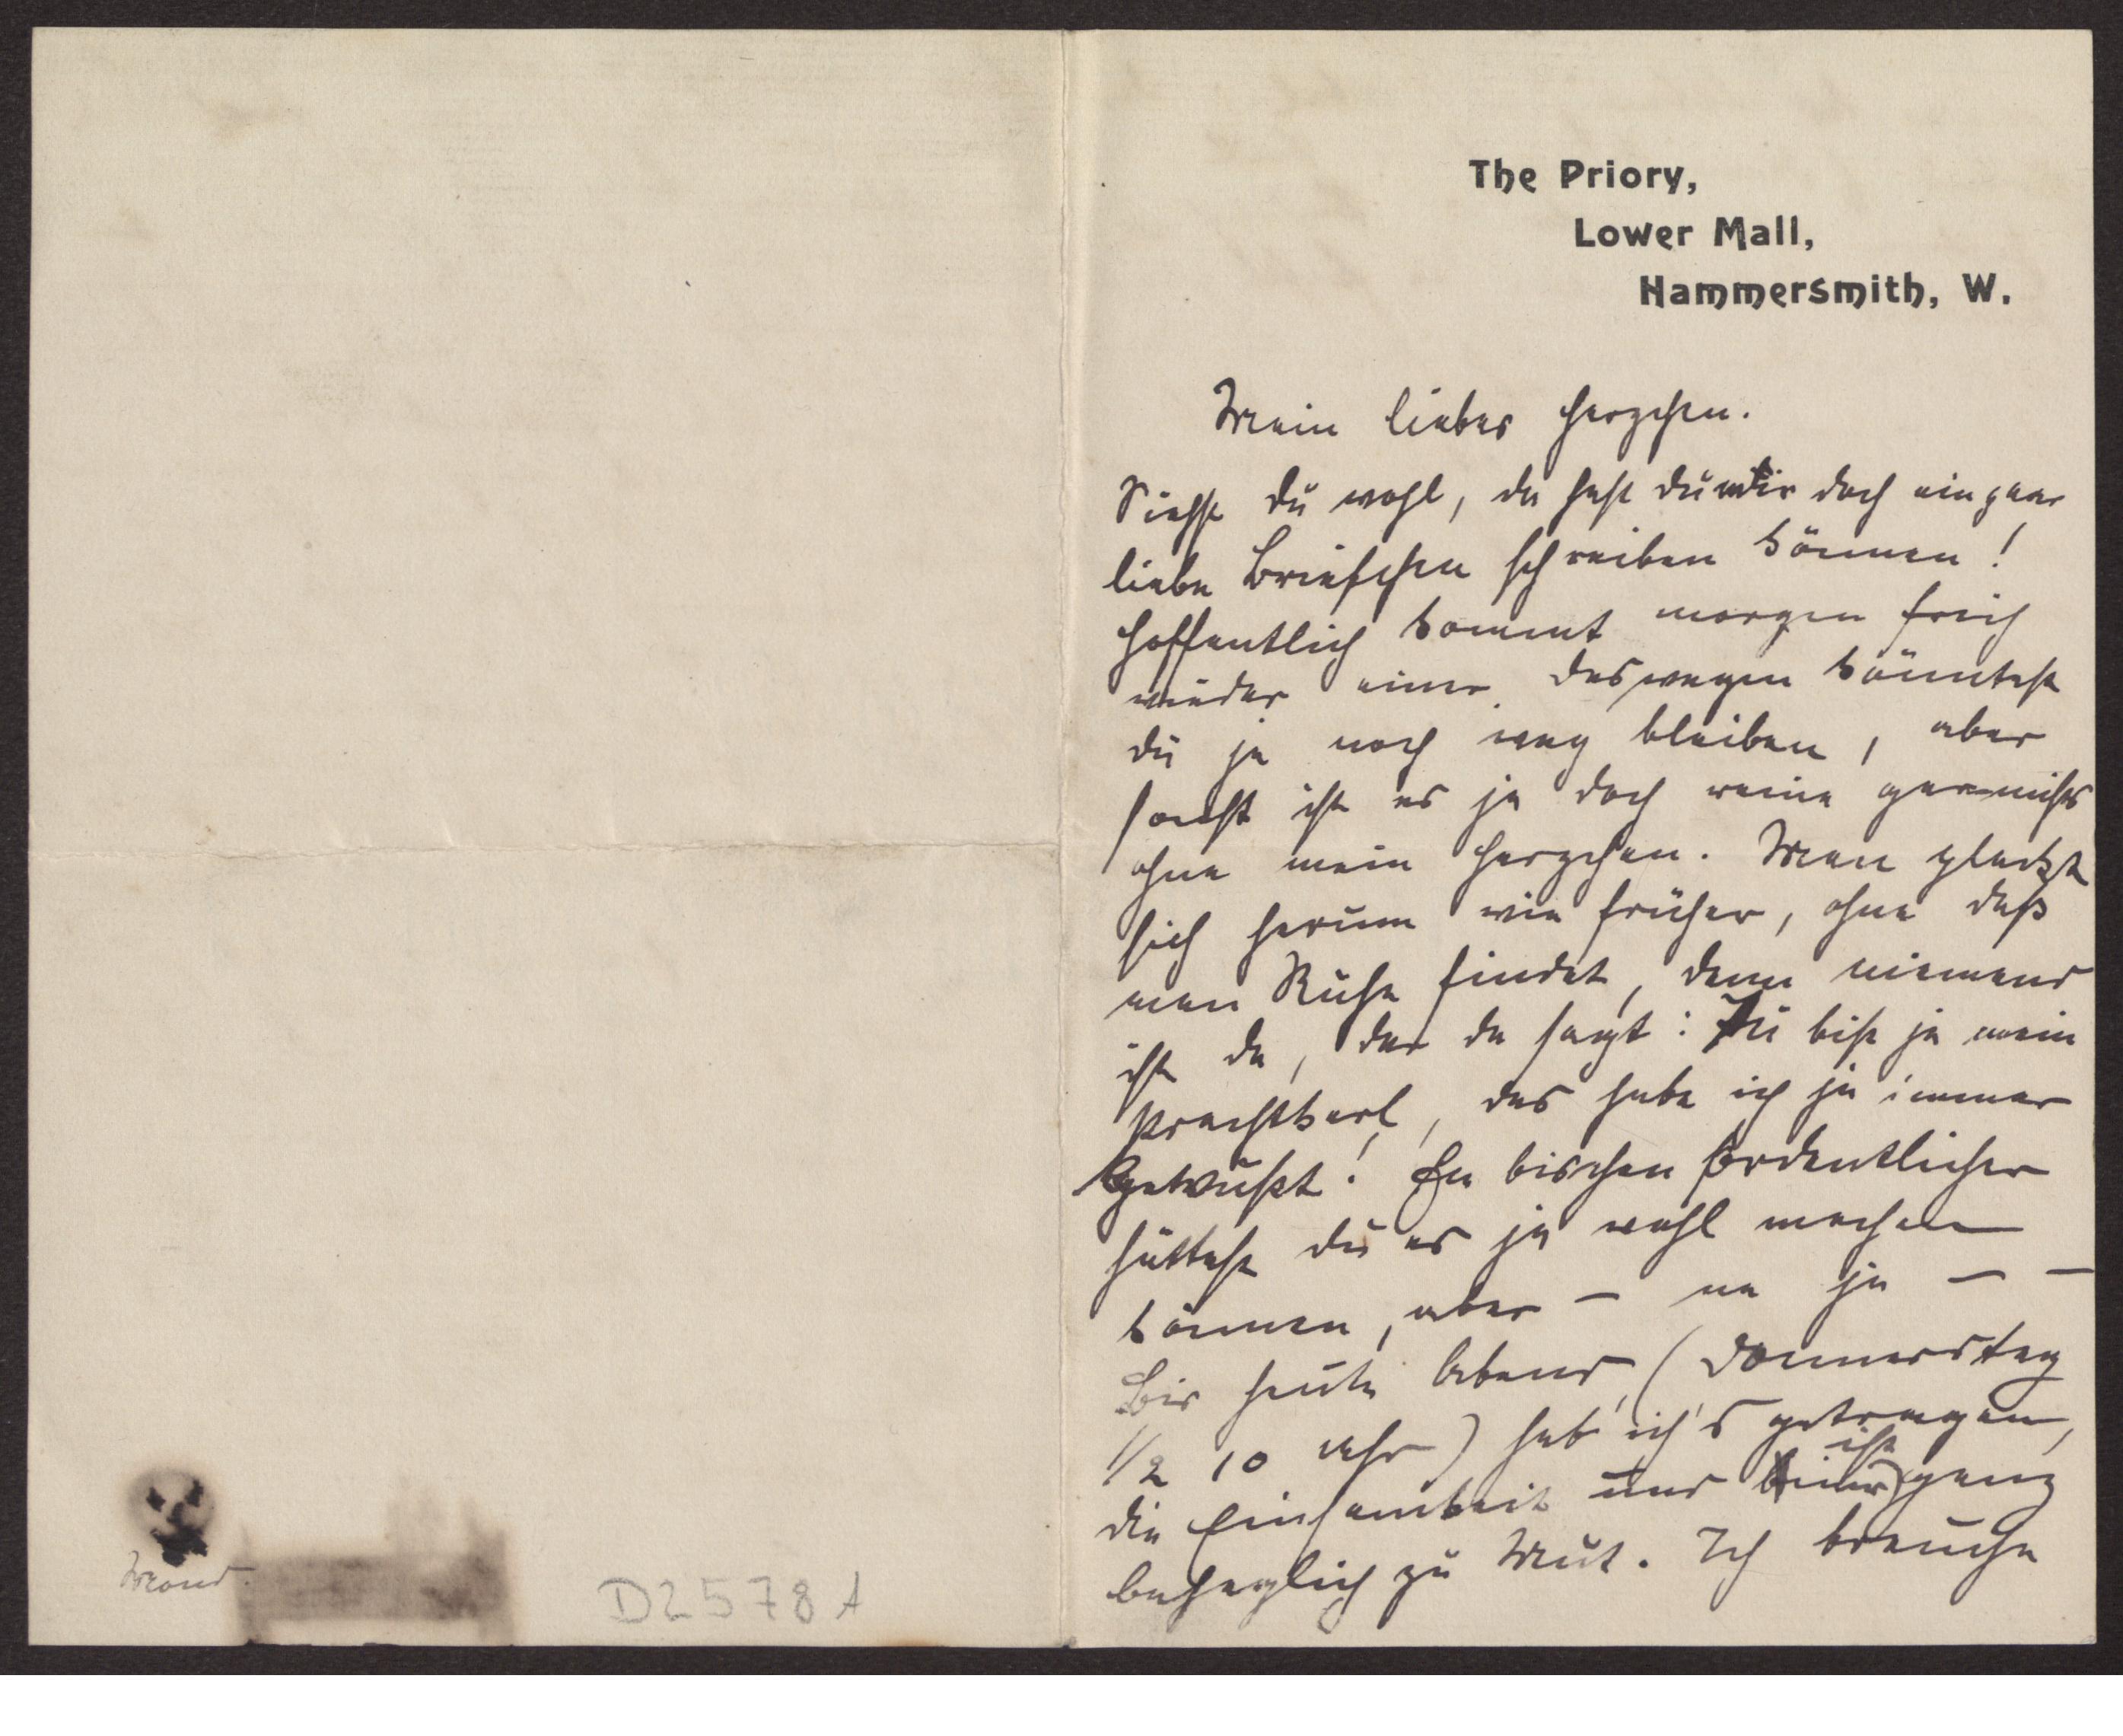 The Priory,
Lower Mall,
Hammersmith, W.
Mein liebes Herzchen.
Siehst du wohl, da hast du mir doch ein paar
liebe Briefchen schreiben können!
Hoffentlich kommt morgen früh
wieder einer. Deswegen könntest
du ja noch weg bleiben, aber
sonst ist es ja doch reine garnichts
ohne mein Herzchen. Man plackt
sich herum wie früher, ohne daß
man Ruhe findet, denn niemand
ist da, der da sagt: Du bist ja mein
Prachtkerl, das habe ich ja immer
gewußt! En bischen ordentlicher
hättest du es ja wohl machen
können, aber – na ja – –
Bis heute Abend, (Donnerstag
1/2 10 Uhr) hab ich's getragen,
die Einsamkeit und ist ganz
behaglich zu Mut. Ich brauche
Mond.
D2578A